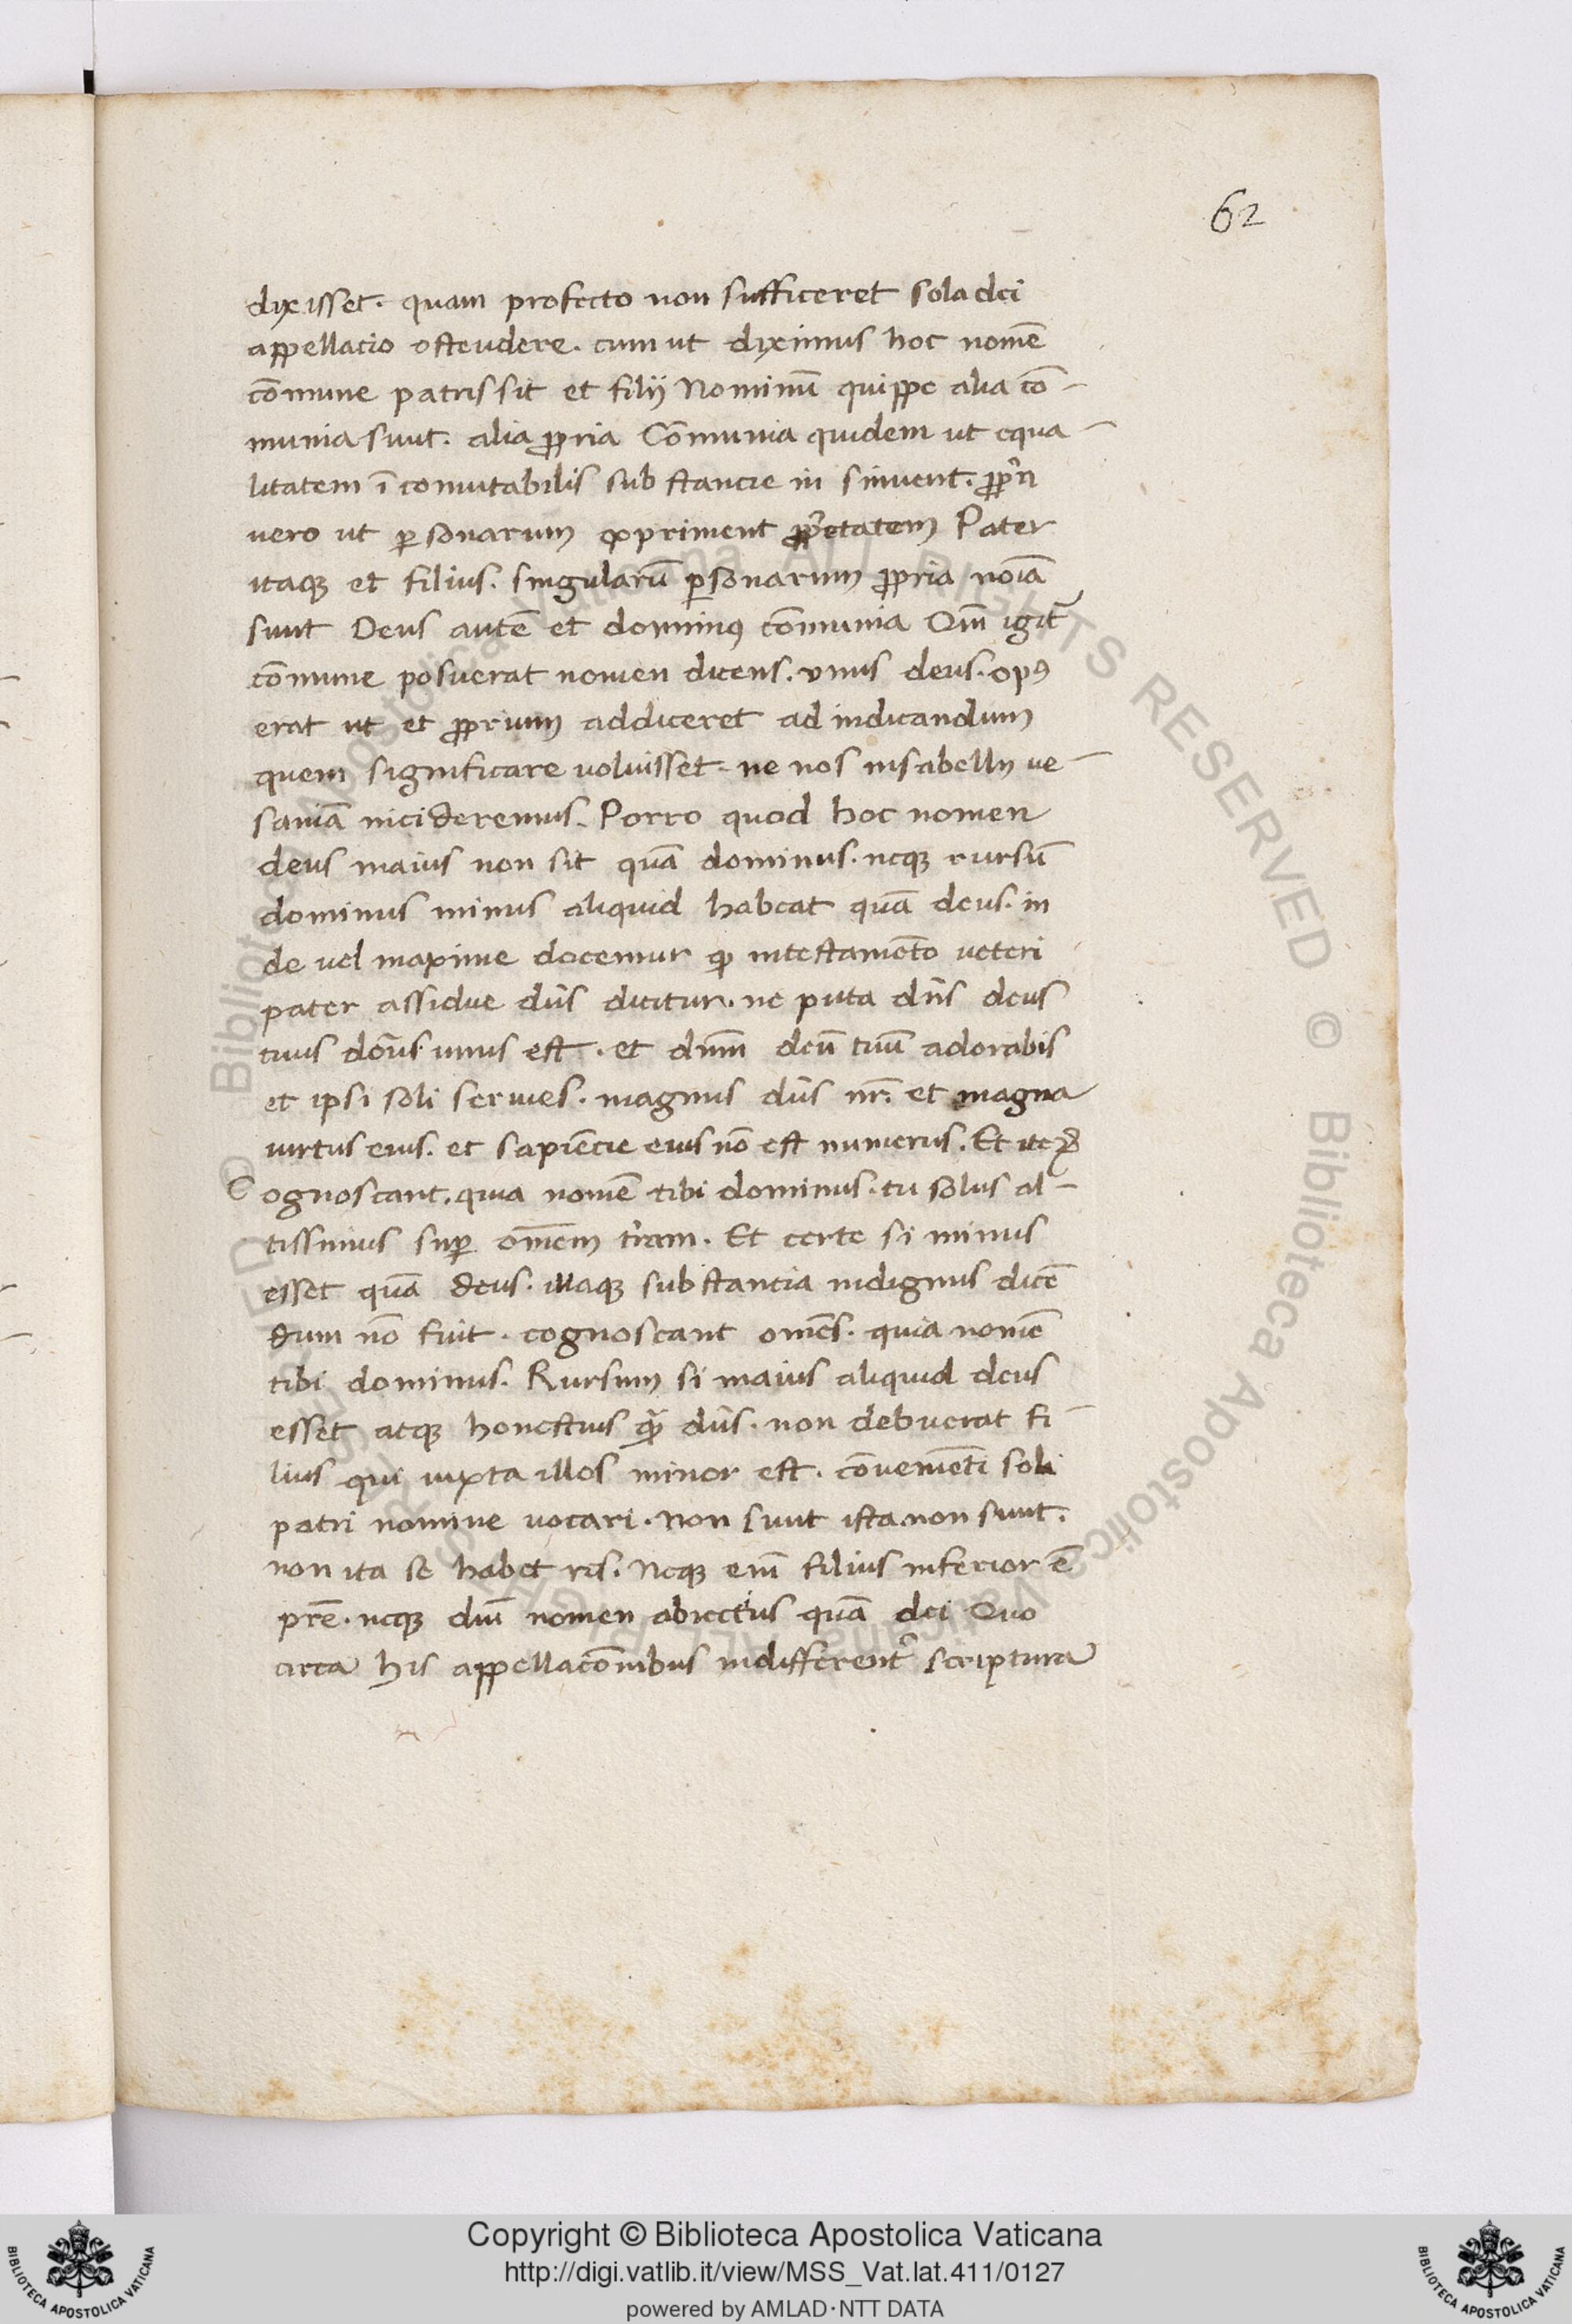 62
dixisset. quam profecto non sufficeret sola dei
appellacio ostendere. cum ut diximus hoc nomē
cōmune patris sit et filij Nominū quippe alia cō-
munia sunt. alia ꝓpria Cōmunia quidem ut equa-
litatem ī comutabilis substancie in sinuent.
vero ut ꝑsonarum expriment ꝓp̃etatem Pater
itaqꝫ et filius. singularū ꝑsonarum ꝓpria noīa
sunt Deus autē et dominꝰ cōmunia Qm̄ igit᷑
cōmune posuerat nomen dicens. vnus deus. opꝰ
erat ut et ꝓprium addiceret ad indicandum
quem significare voluisset. ne nos insabellij ve-
saniā incideremus. Porro quod hoc nomen
deus maius non sit quā dominus. neqꝫ rursū
dominus minus aliquid habeat quā deus. in
de vel maxime docemur ꝙ intestamēto veteri
pater assidue dn̄s dicitur. ne puta dn̄s deus
tuus dn̄s unus est. et dnm̄ deū tuū adorabis
et ipsi soli servies. magnus dn̄s nr̄. et magna
virtus eius. et sapiēcie eius nō est numerus. Et iteꝝ
Cognoscant. quia nomē tibi dominus. tu solus al-
tissimus suꝑ om̄em tr̄am. Et certe si minus
esset quā deus. illaqꝫ substantia indignus dicē
dum nō fuit. cognoscant om̄es. quia nomē
tibi dominus. Rursum si maius aliquid deus
esset atqꝫ honestius ꝙ̄ dn̄s. non debuerat fi-
lius qui iuxta illos minor est. cōveniēti soli
patri nomine vocari. non sunt ista non sunt.
non ita se habet res. Neqꝫ em̄ filius inferior ē
prē. neqꝫ dn̄i nomen abiectius quā dei Quo
circa his appellacōnibus indifferent᷑ scriptura
Copyright © Biblioteca Apostolica Vaticana
http://digi.vatlib.it/view/MSS_Vat.lat.411/0127
powered by AMLAD·NTT DATA